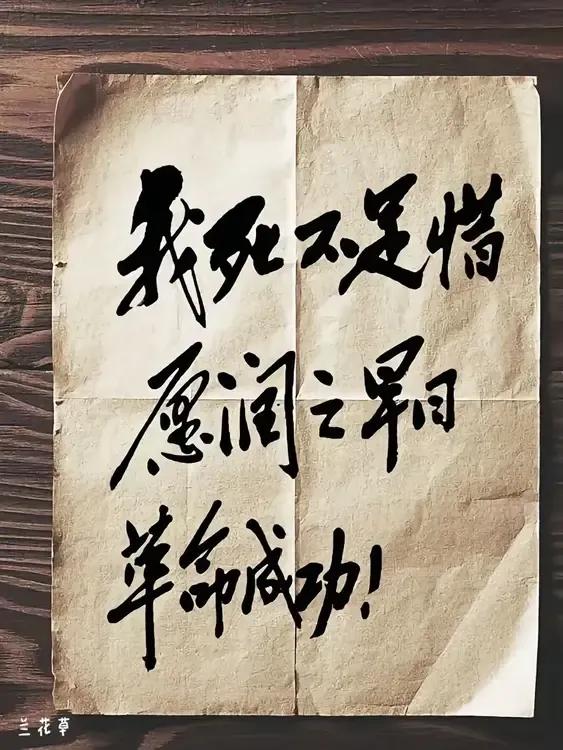 我死不足惜
愿润之早日
革命成功！
兰花草